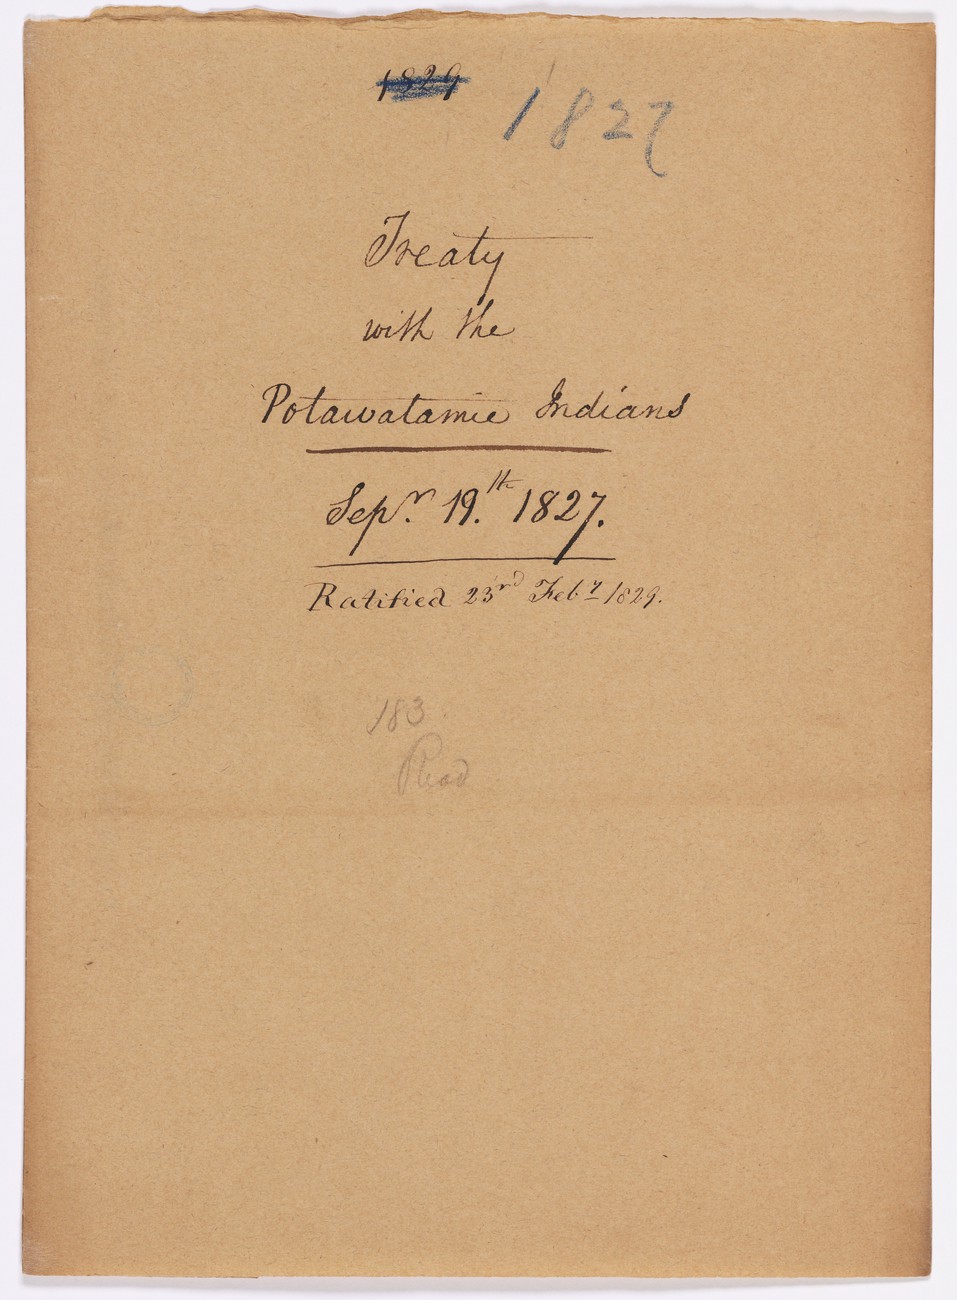 1829
1827
Treaty
with the
Potawatamie Indians
Sepr. 19.th 1827.
Ratified 23rd Feby 1829.
183